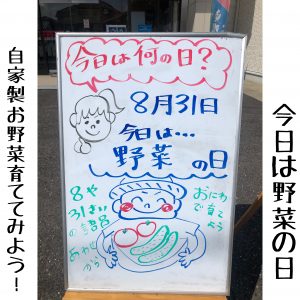 今日は野菜の日
今日は何の日?
8月31日
今日は…
野菜の日
おにわで育てよう
8や
31さい
の語呂
あわせから
自家製お野菜育ててみよう!